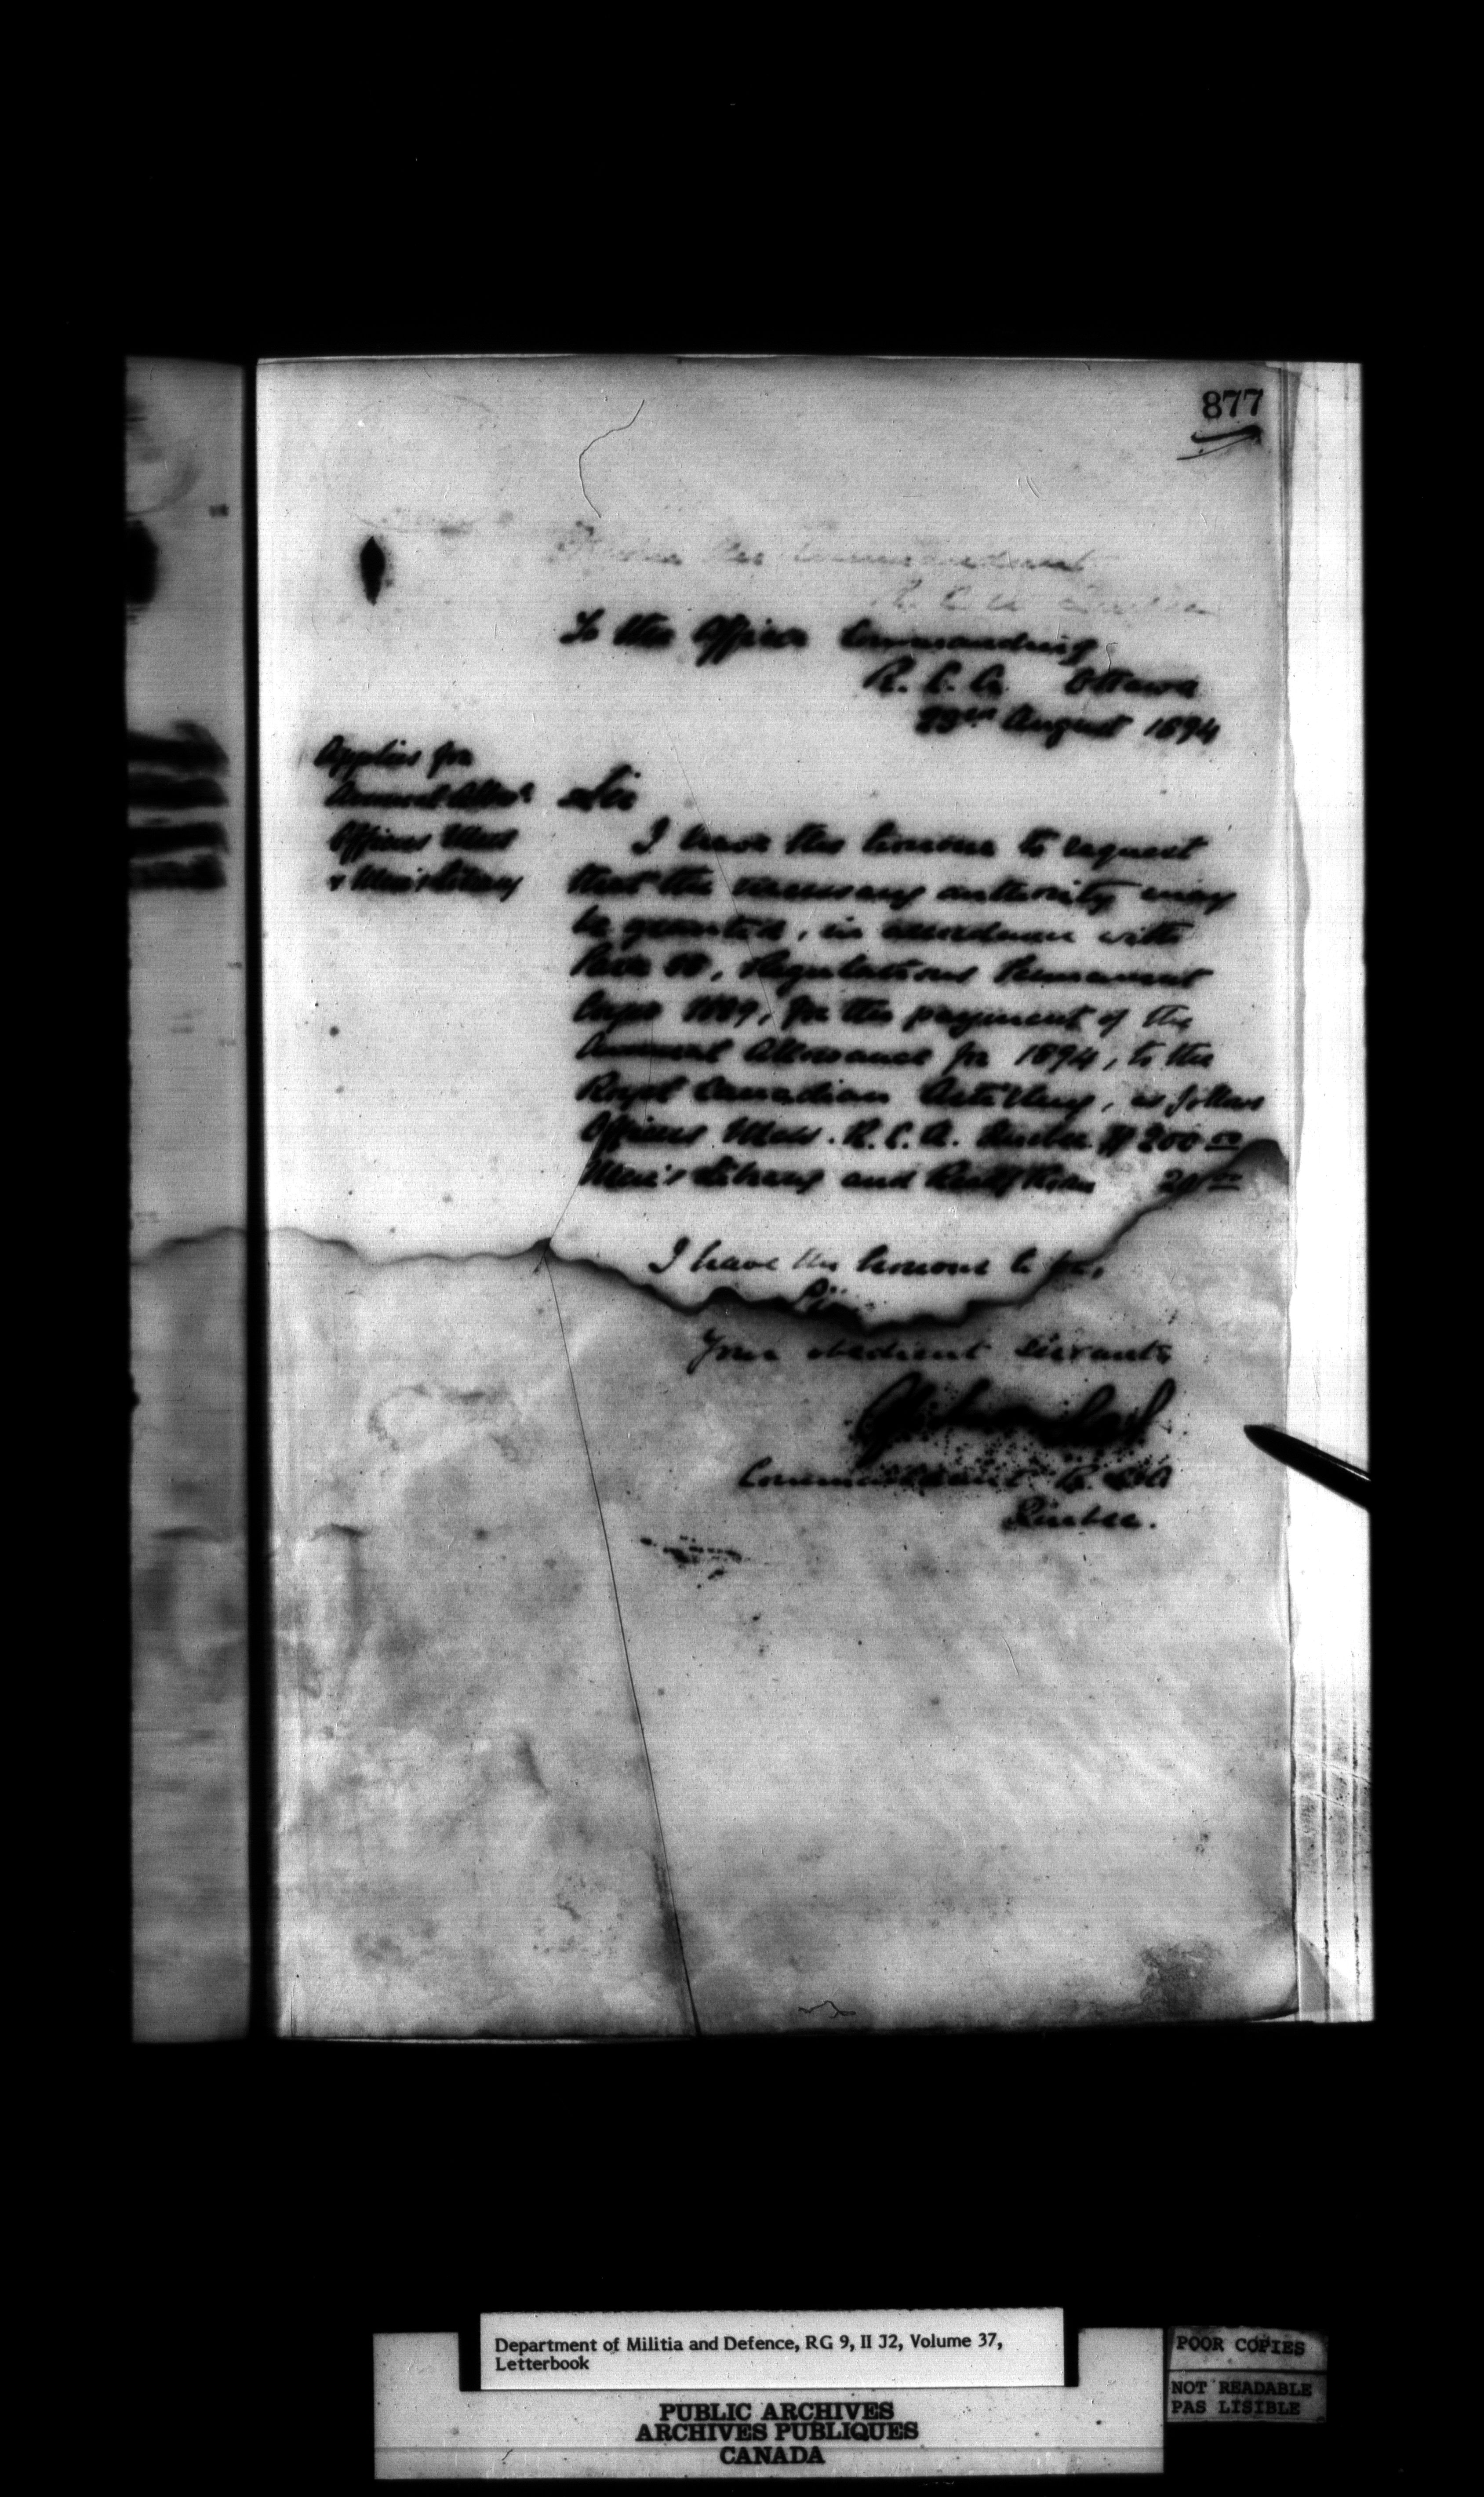 877
From the Commandant
R. C. A. Quebec
To the Officer Commanding
R. C. A. Ottawa
23rd August 1894
Applies for
Annual Allow
Officers Mess
& Men's Library
Sir
I have the honour to request
that the necessary authority may
be granted, in accordance with
Para, Regulations Permanent
Corps 1889, for the payment of the
Annual Allowance for 1894, to the
Royal Canadian Artillery, as follows
Officers Mess. R. C. A. Quebec $200 00
Men's Library and Room
I have the honour to be,
Sir
Your obedient servant,
Commandant R. C. A
Quebec.
Department of Militia and Defence, RG 9, II J2, Volume 37,
Letterbook
PUBLIC ARCHIVES
ARCHIVES PUBLIQUES
CANADA
POOR COPIES
NOT READABLE
PAS LISIBLE